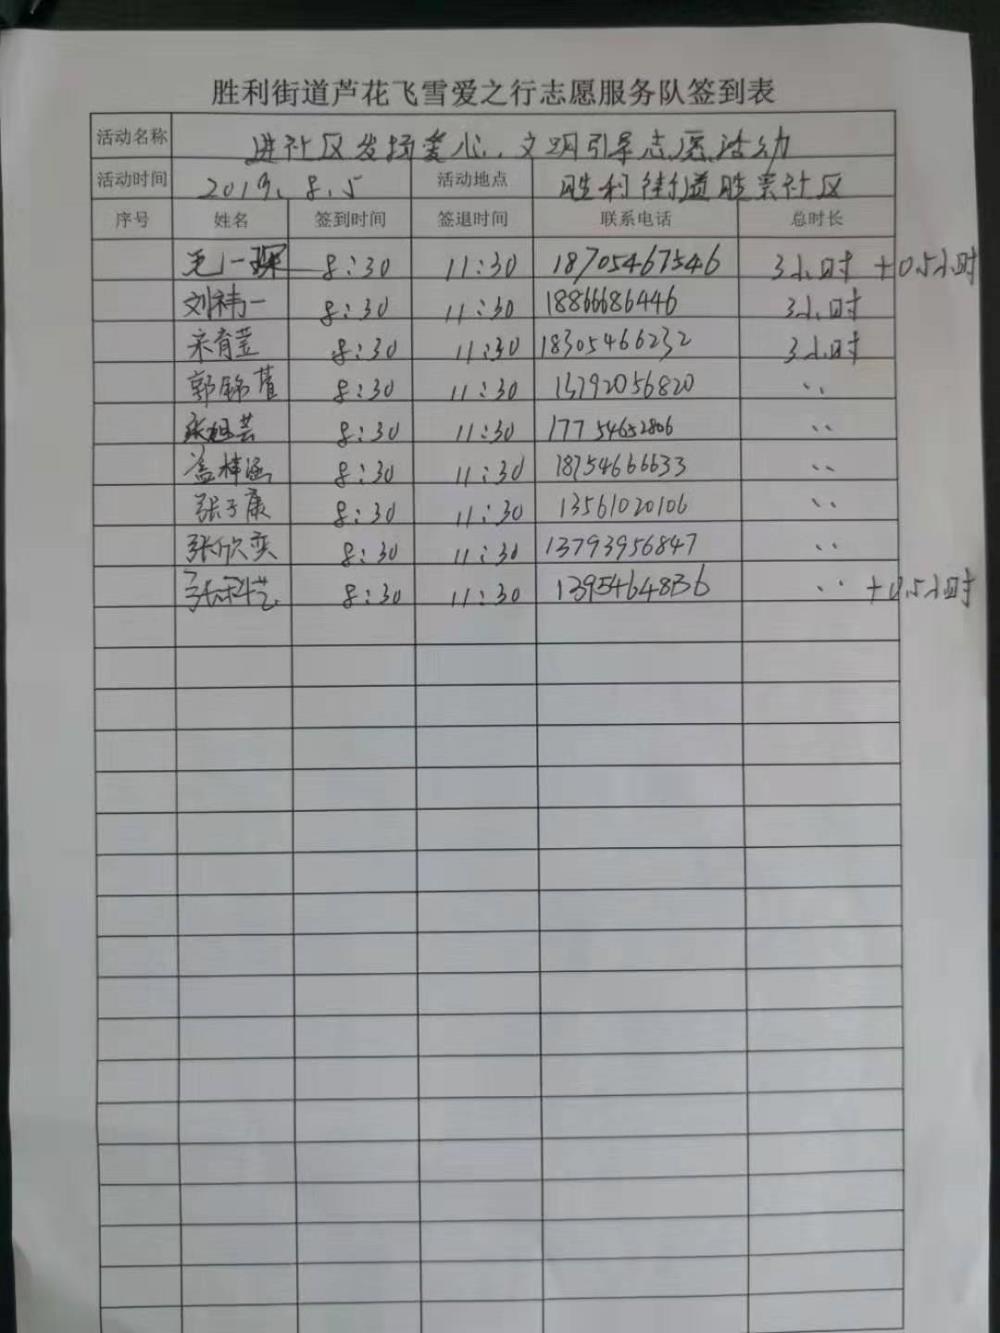 胜利街道芦花飞雪爱之行志愿服务队签到表
活动名称 进社区发扬爱心、文明引导志愿活动
活动时间 2019、8、5 活动地点 胜利街道胜景社区
序号 姓名 签到时间 签退时间 联系电话 总时长
毛一琛 8:30 11:30 18705467546 3小时 +0.5小时
刘祎一 8:30 11:30 18866686446 3小时
宋育莹 8:30 11:30 18305466232 3小时
郭锦萱 8:30 11:30 13792056820 、、
张旭芸 8:30 11:30 17754652806 、、
盖梓涵 8:30 11:30 18754666633 、、
张子康 8:30 11:30 13561020106 、、
张欣奕 8:30 11:30 13793956847 、、
张科艺 8:30 11:30 13954648836 、、 +0.5小时